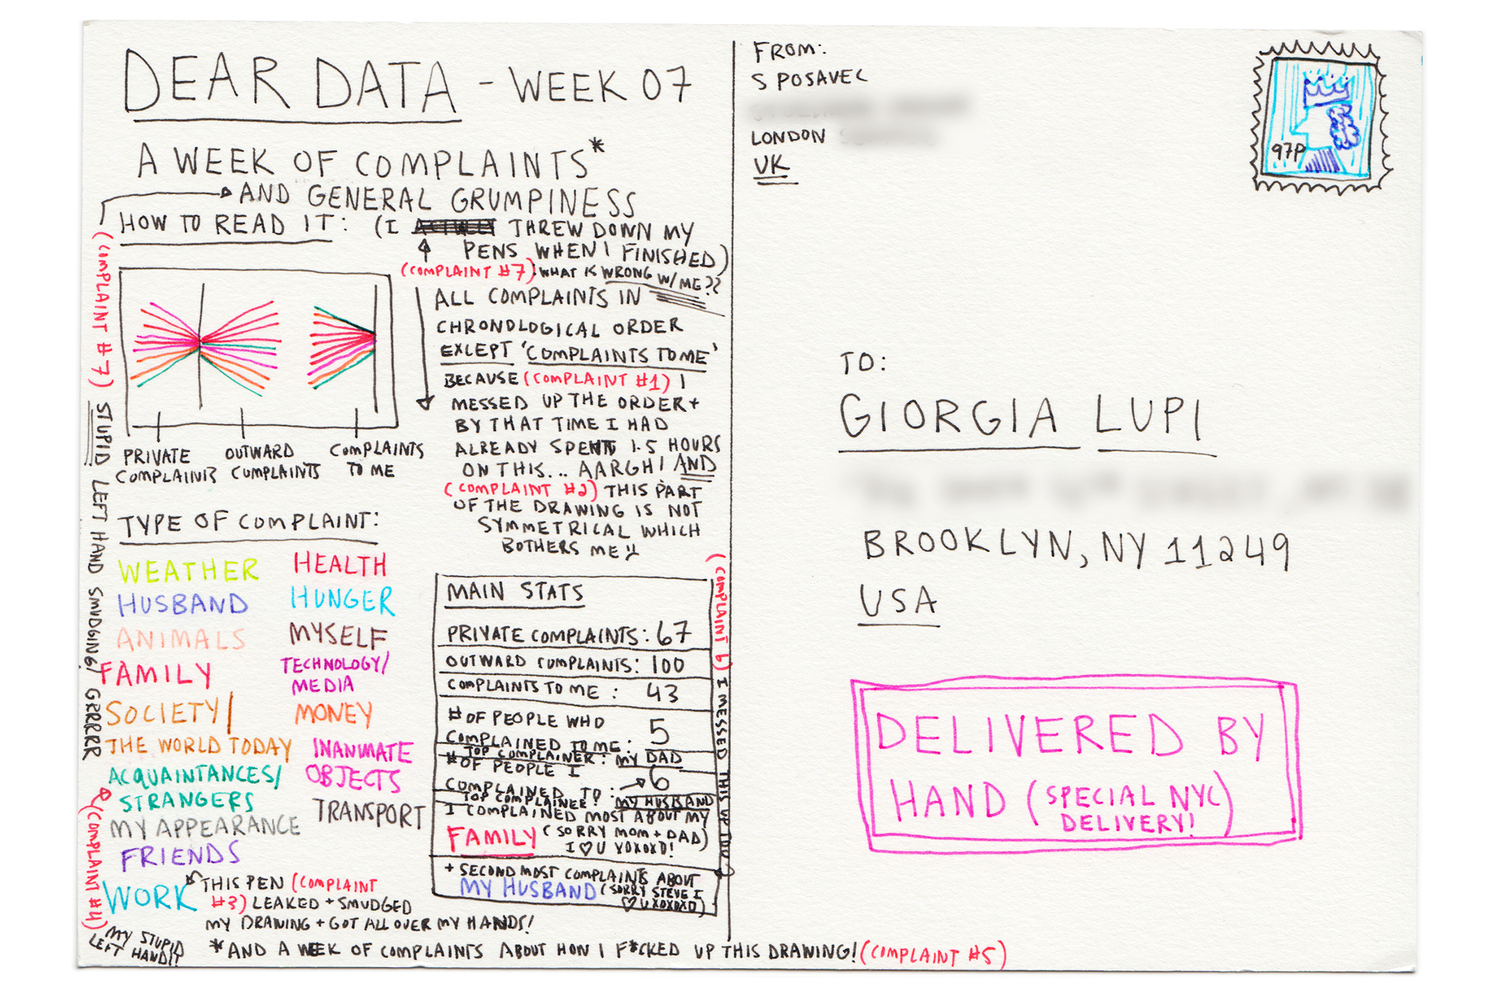 DEAR DATA - WEEK 07
A WEEK OF COMPLAINTS*
AND GENERAL GRUMPINESS
HOW TO READ IT: (I THREW DOWN MY
PENS WHEN I FINISHED)
(COMPLAINT #7) WHAT IS WRONG W/ME??
(COMPLAINT #7) STUPID LEFT HAND SMUDGING! GRRRRR
ALL COMPLAINTS IN
CHRONOLOGICAL ORDER
EXCEPT 'COMPLAINTS TO ME'
BECAUSE (COMPLAINT #1) I
MESSED UP THE ORDER +
BY THAT TIME I HAD
ALREADY SPENT 1.5 HOURS
ON THIS... AARGH! AND
(COMPLAINT #2) THIS PART
OF THE DRAWING IS NOT
SYMMETRICAL WHICH
BOTHERS ME
PRIVATE
COMPLAINTS
OUTWARD
COMPLAINTS
COMPLAINTS
TO ME
TYPE OF COMPLAINT:
WEATHER
HUSBAND
ANIMALS
FAMILY
SOCIETY/
THE WORLD TODAY
ACQUAINTANCES/
STRANGERS
MY APPEARANCE
FRIENDS
WORK
HEALTH
HUNGER
MYSELF
TECHNOLOGY/
MEDIA
MONEY
INANIMATE
OBJECTS
TRANSPORT
THIS PEN (COMPLAINT
#3) LEAKED + SMUDGED
MY DRAWING + GOT ALL OVER MY HANDS!
(COMPLAINT #4)
MY STUPID
LEFT HAND!!
MAIN STATS
PRIVATE COMPLAINTS: 67
OUTWARD COMPLAINTS: 100
COMPLAINTS TO ME: 43
# OF PEOPLE WHO
COMPLAINED TO ME: 5
TOP COMPLAINER: MY DAD
# OF PEOPLE I
COMPLAINED TO: 6
TOP COMPLAINEE: MY HUSBAND
I COMPLAINED MOST ABOUT MY
FAMILY (SORRY MOM + DAD)
I ♡ U XOXOXO!
+ SECOND MOST COMPLAINTS ABOUT
MY HUSBAND (SORRY STEVE I
♡ U XOXOXO)
(COMPLAINT 6) I MESSED THIS UP TOO
*AND A WEEK OF COMPLAINTS ABOUT HOW I F*CKED UP THIS DRAWING! (COMPLAINT #5)
FROM:
S POSAVEC
LONDON
UK
97P
TO:
GIORGIA LUPI
BROOKLYN, NY 11249
USA
DELIVERED BY
HAND (SPECIAL NYC
DELIVERY!)